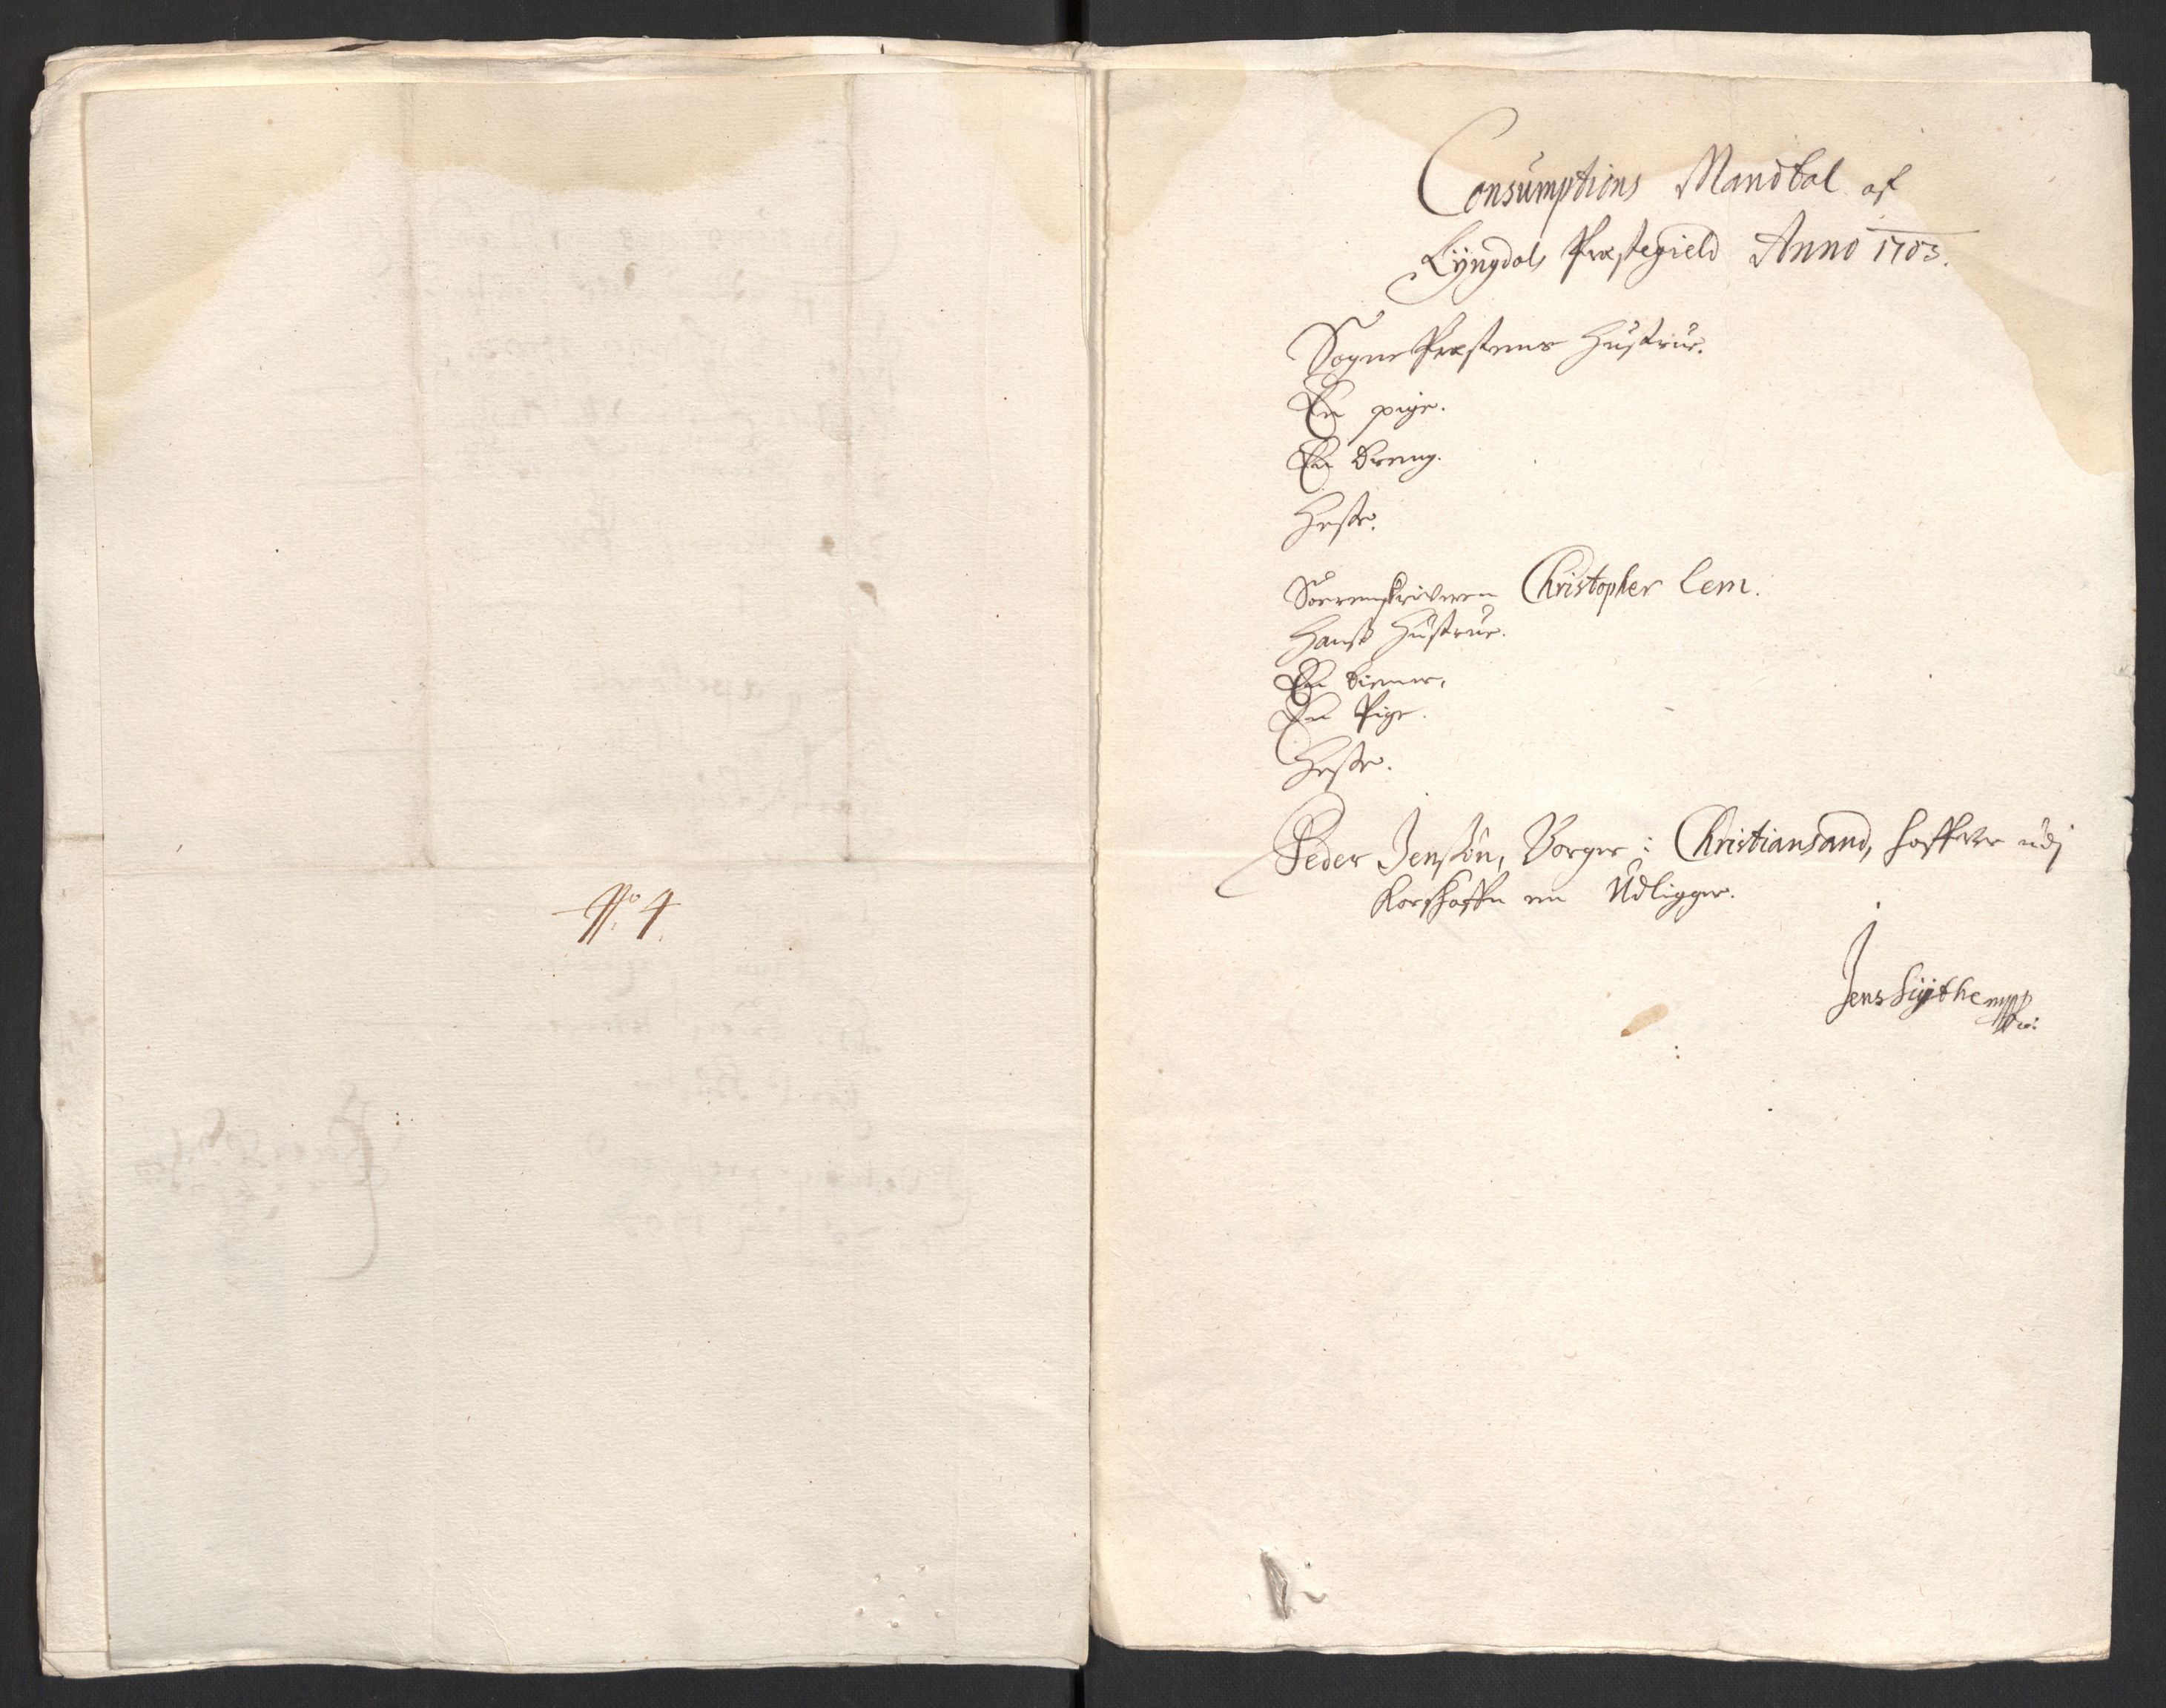 No. 4.
Consumptions Mandtal af
Lÿngdals Præstegield Anno 1703.
Sogne Præstens Hustrue.
En pige.
En dreng.
Heste.
Sorenskriveren Christopher Lem.
Hanß Hustrue.
En diener,
En Pige.
Heste.
Peder Jensøn, Borger i Christiansand, haffver udj
Korshaffn en Udligger.
Jens